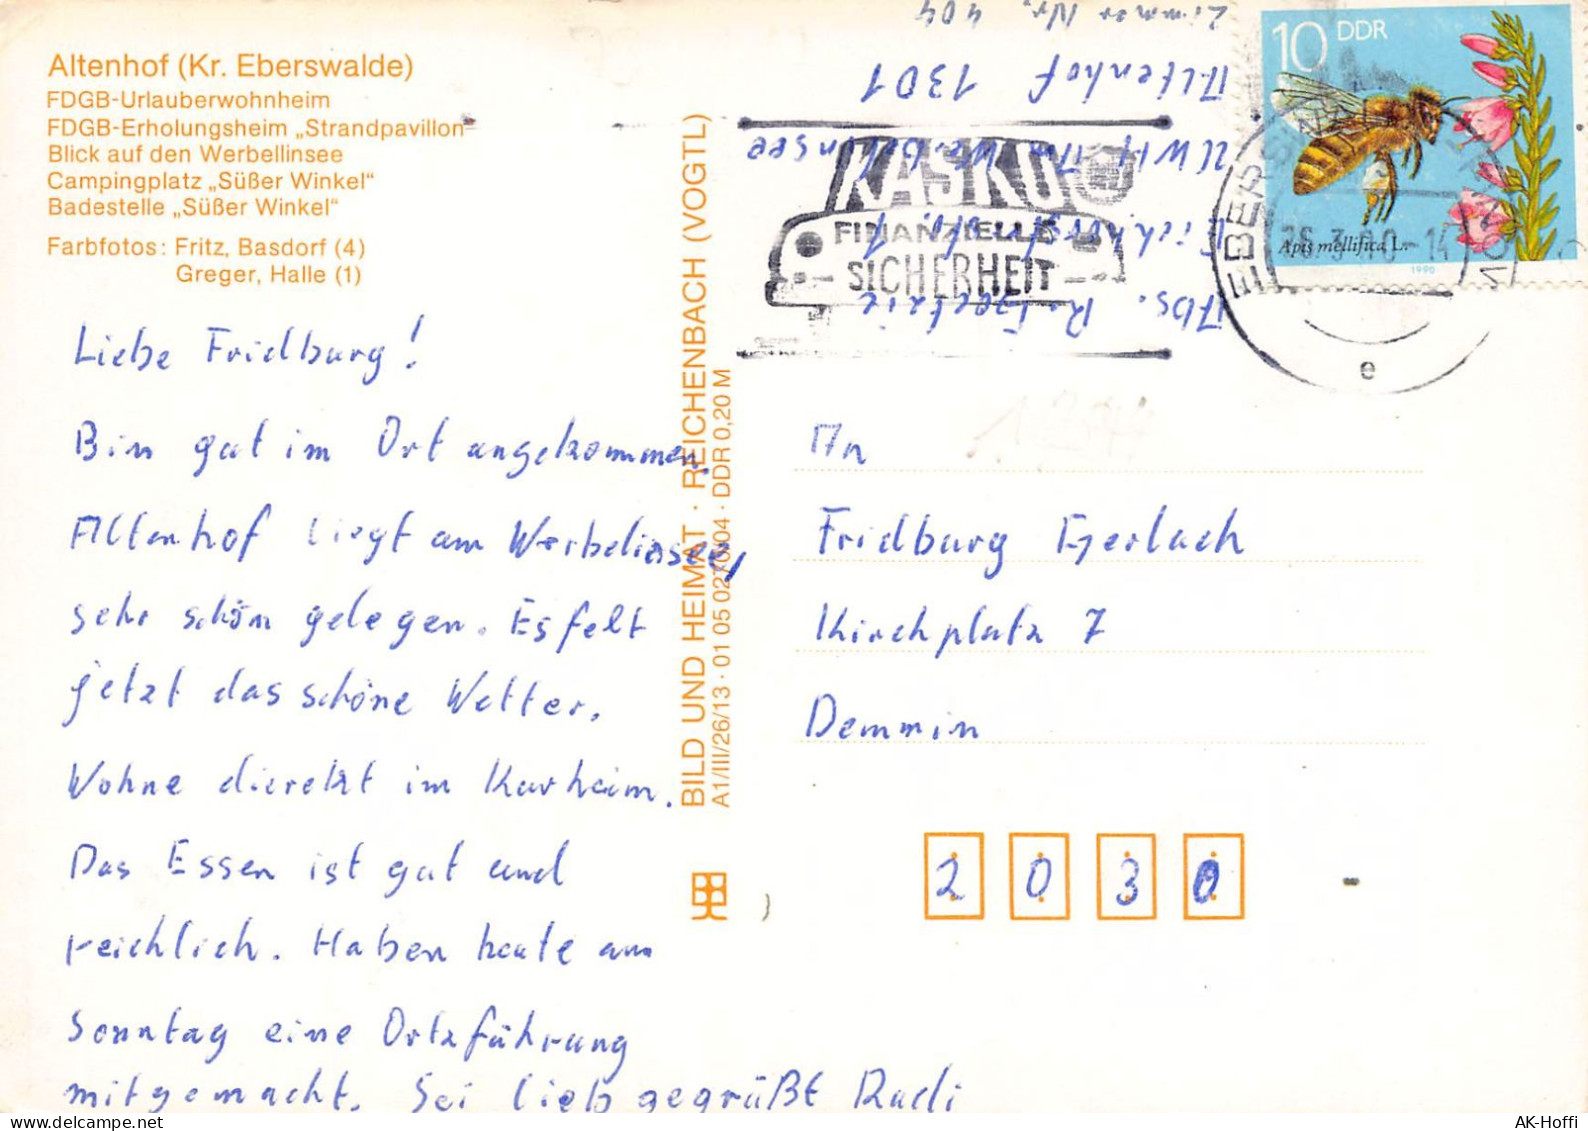 Altenhof (Kr. Eberswalde)
FDGB-Urlauberwohnheim
FDGB-Erholungsheim „Strandpavillon“
Blick auf den Werbellinsee
Campingplatz „Süßer Winkel“
Badestelle „Süßer Winkel“
Farbfotos: Fritz, Basdorf (4)
Greger, Halle (1)
Liebe Fridburg!
Bin gut im Ort angekommen.
Altenhof liegt am Werbelinsee,
sehr schön gelegen. Es felt
jetzt das schöne Wetter.
Wohne dierekt im Kurheim.
Das Essen ist gut und
reichlich. Haben heute am
Sonntag eine Ortzführung
mitgemacht. Sei lieb gegrüßt Rudi
BILD UND HEIMAT · REICHENBACH (VOGTL)
A1/III/26/13 · 01 05 0270/04 · DDR 0,20 M
Abs.
Altenhof 1301
Zimmer Nr. 404
KASKO
FINANZIELLE
SICHERHEIT
10 DDR
Apis mellifica L.
1990
e
An
Fridburg Gerlach
Kirchplatz 7
Demmin
2030
AK-Hoffi